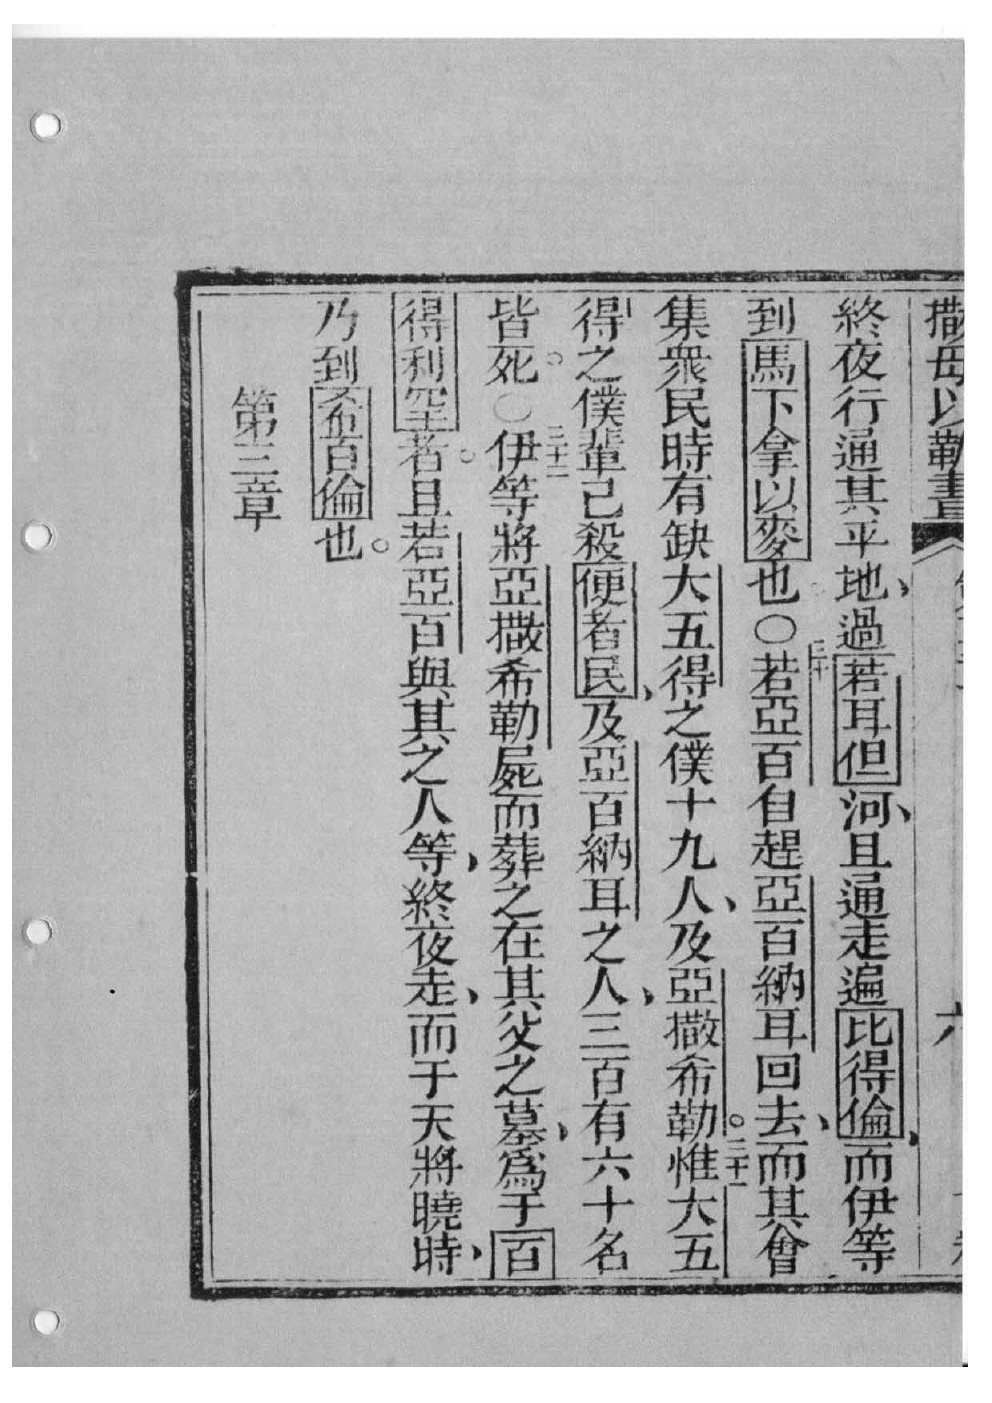 撒母以勒書
六
終夜行通其平地、過若耳但河、且通走遍比得倫、而伊等
到馬下拿以麥也。○三十若亞百自趕亞百納耳回去、而其會
集衆民時有缺大五得之僕十九人、及亞撒希勒。三十一惟大五
得之僕輩已殺便者民、及亞百納耳之人、三百有六十名
皆死。○三十二伊等將亞撒希勒屍而葬之在其父之墓、爲于百
得利㘡者。且若亞百與其之人等、終夜走、而于天將曉時、
乃到希百倫也。
第三章